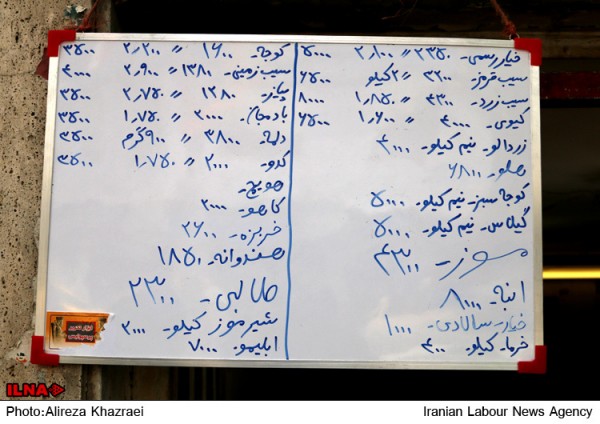 خیار رسمی - ۲۳۵۰ // ۲٫۱۰۰ ۵۰۰۰
سیب قرمز - ۳۲۰۰ // ۲کیلو ۶۵۰۰
سیب زرد - ۴۳۰۰ // ۱٫۸۵۰ ۸۰۰۰
کیوی - ۴۰۰۰ // ۱٫۶۰۰ ۶۵۰۰
زردآلو - نیم کیلو - ۴۰۰۰
هلو - ۶۸۰۰
گوجه سبز - نیم کیلو - ۵۰۰۰
گیلاس - نیم کیلو - ۵۰۰۰
موز - ۴۳۰۰
انبه - ۸۰۰۰
خیار - سالادی - ۱۰۰۰
خرما - کیلو - ۴۰۰۰
گوجه - ۱۶۰۰ // ۲٫۲۰۰ ۳۵۰۰
سیب زمینی - ۱۳۸۰ // ۲٫۹۰۰ ۴۰۰۰
پیاز - ۱۲۸۰ // ۲٫۷۵۰ ۳۵۰۰
بادمجان - ۲۰۰۰ // ۱٫۷۵۰ ۳۵۰۰
دلمه - ۳۸۰۰ // ۹۰۰گرم ۳۵۰۰
کدو - ۲۰۰۰ // ۱٫۷۵۰ ۳۵۰۰
هویج -
کاهو - ۲۰۰۰
خربزه - ۲۶۰۰
هندوانه - ۱۸۵۰
طالبی - ۲۳۰۰
شیر موز کیلو - ۳۰۰۰
آبلیمو - ۷۰۰۰
ILNA
Photo:Alireza Khazraei
Iranian Labour News Agency